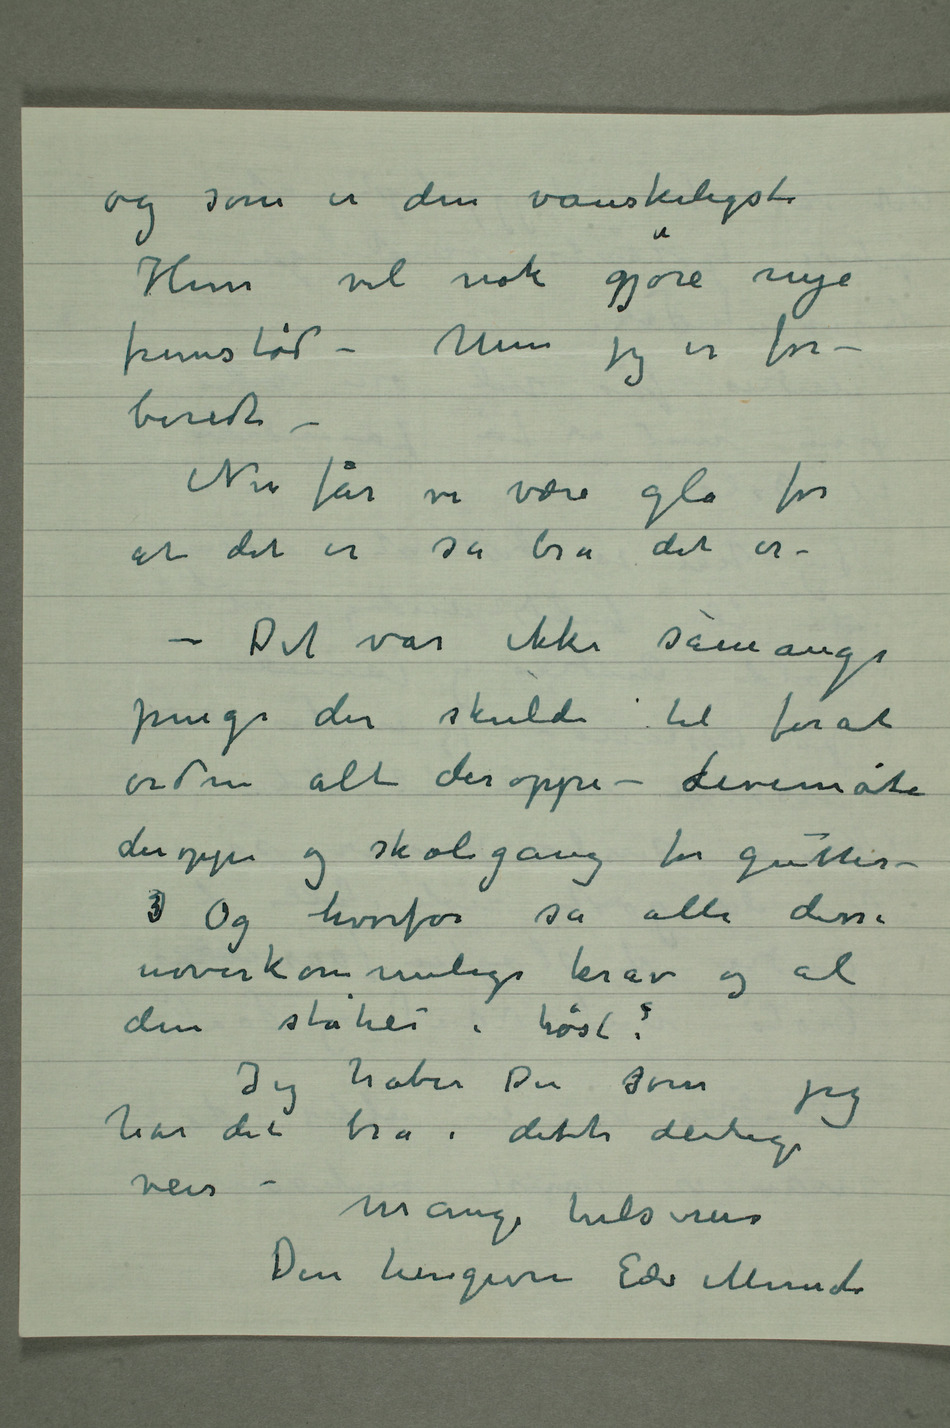 og som er den vanskeligste
Hun vil nok gjøre nye
fremstød – Men jeg er for-
beredt –
Nu får vi være gla for
at det er så bra det er –
– Det var ikke såmange
penge der skulde til forat
ordne alt deroppe – Levemåte
deroppe og skolegang for gutter –
Og hvorfor så alle disse
uoverkommelige krav og al
den ståhei i høst?
Jeg håber Du som jeg
har det bra i dette deilige
veir –
Mange hilsener
Din hengivne Edv Munch